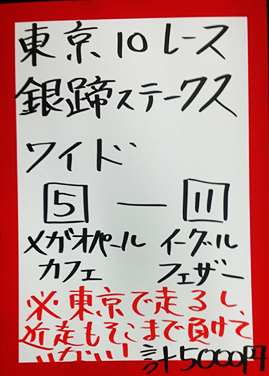 東京10レース
銀蹄ステークス
ワイド
5 — 11
メガオパール イーグル
カフェ フェザー
※東京で走るし、
近走もそこまで負けて
いない!!
計5000円